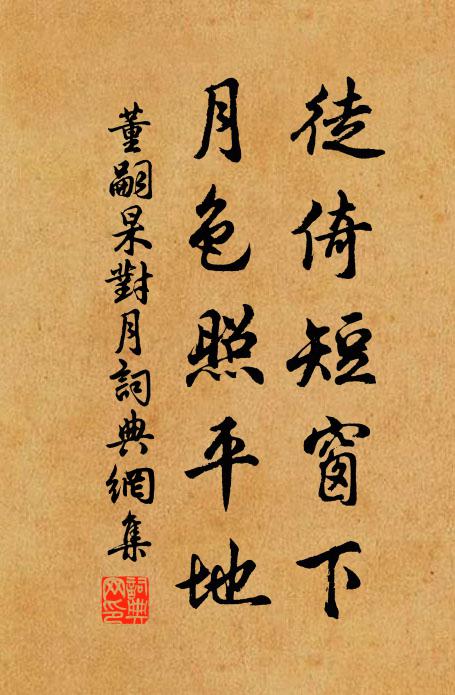 徒倚短窗下
月色照平地
董嗣杲對月詞典網集
詞典
网印